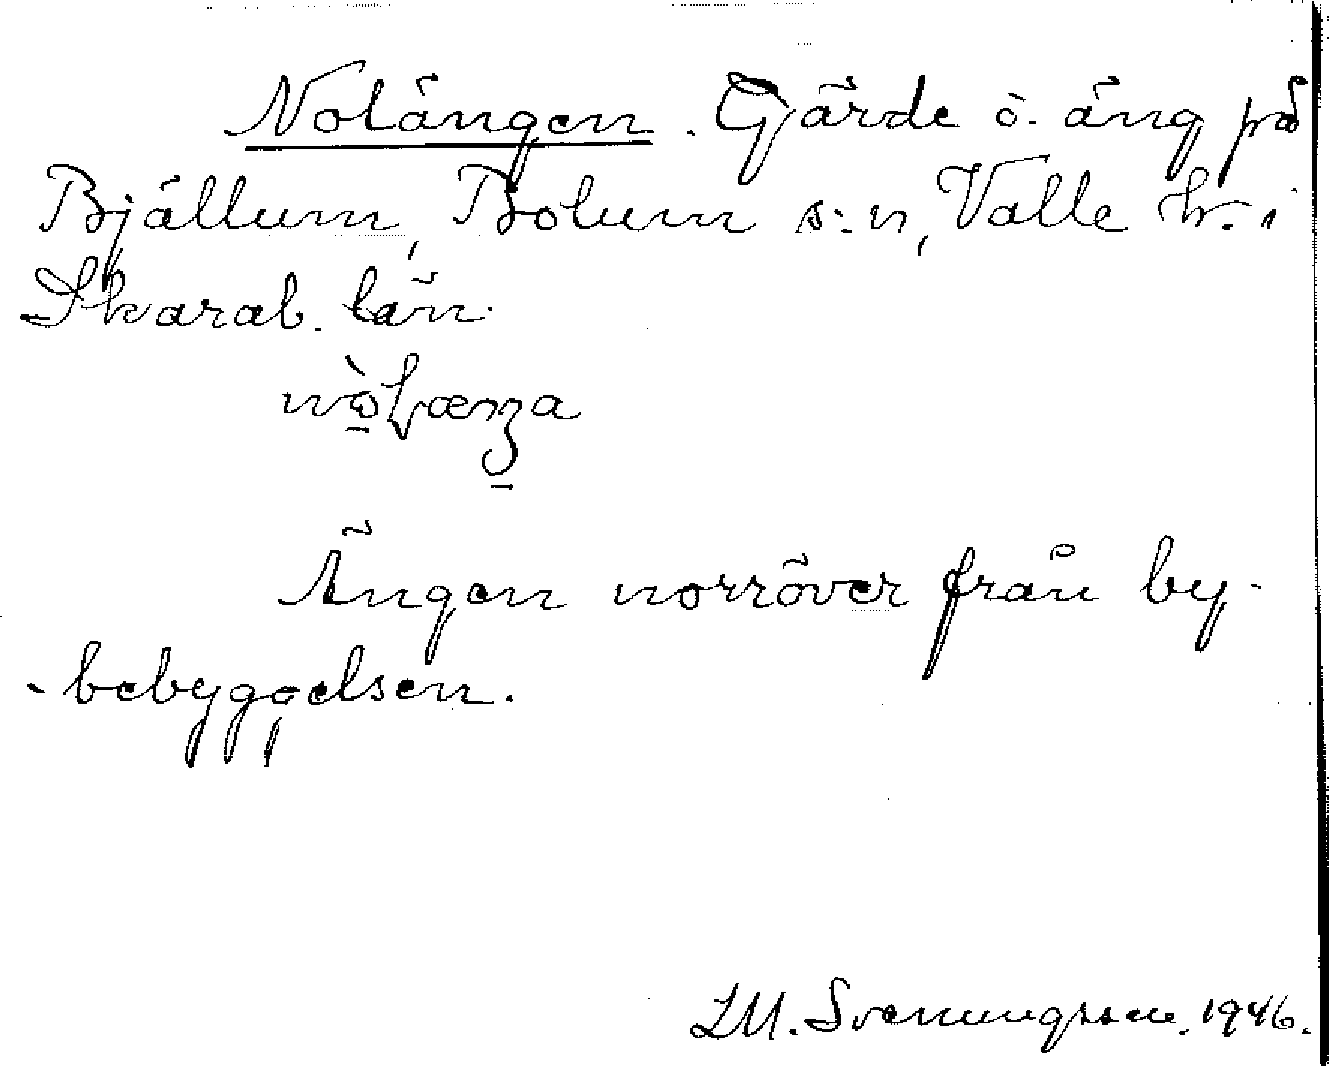 Nolängen. Gärde o. äng på
Bjällum, Bolum s:n, Valle hr. i
Skarab. län.
Ängen norröver från by-
-bebyggelsen.
LM. Svenungsson. 1946.